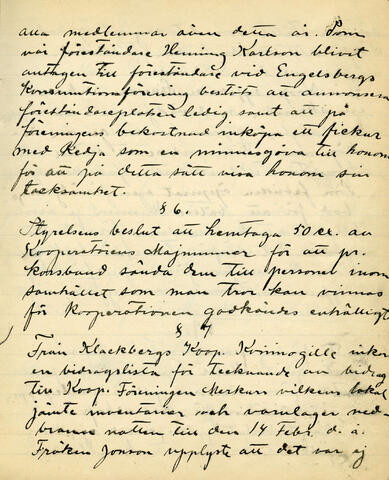 alla medlemmar även detta år. Som
vår föreståndare Henning Karlson blivit
antagen till föreståndare vid Engelsbergs
Konsumtionsförening beslöts att annonsera
föreståndareplatsen ledig samt att på
föreningens bekostnad inköpa ett fickur
med Kedja som en minnesgåva till honom
för att på detta sätt visa honom sin
tacksamhet.
§ 6.
Styrelsens beslut att hemtaga 50 ex. av
Kooperatörens Majnummer för att pr.
korsband sända dem till personer inom
samhället som man tror kan vinnas
för Kooperationen godkändes enhälligt
§ 7
Från Klackbergs Koop. Kvinnogille inkom
en bidragslista för tecknande av bidrag
till Koop. Föreningen Merkur vilkens lokal
jämte inventarier och varulager ned-
brunno natten till den 14 Febr. d. å.
Fröken Jonson upplyste att det var ej